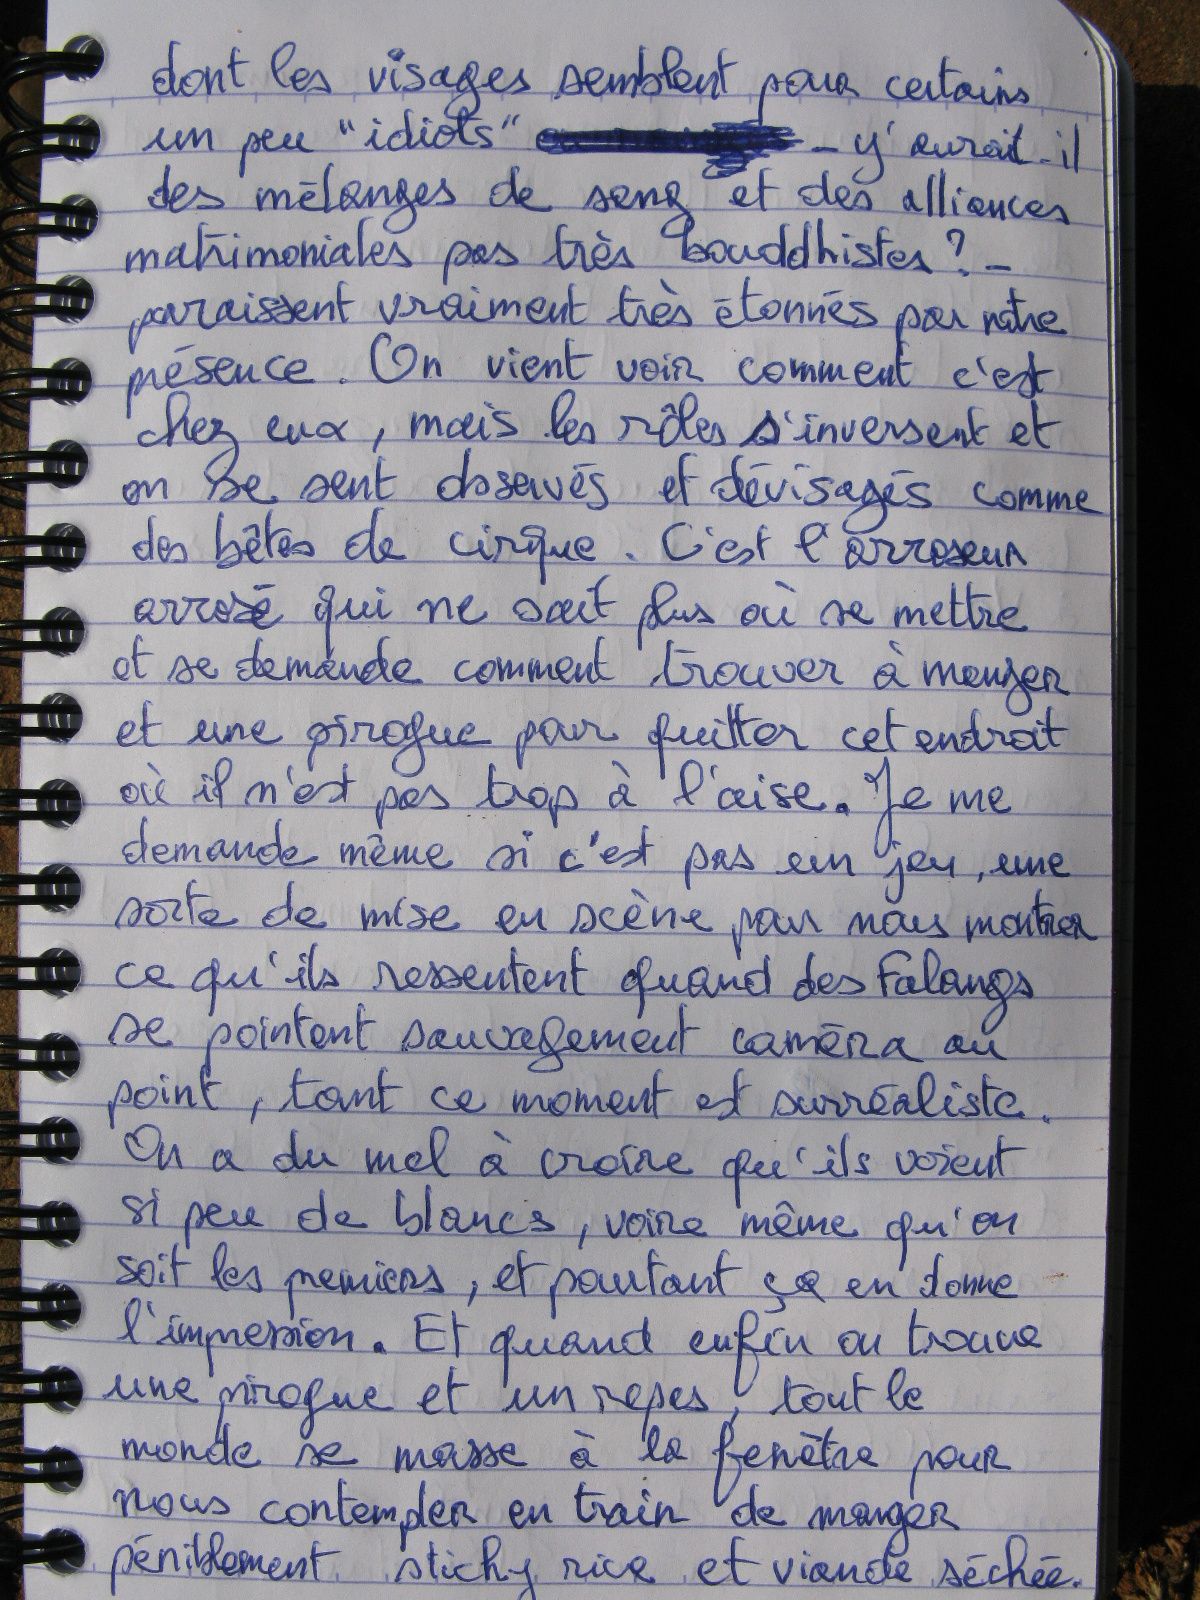 dont les visages semblent pour certains
un peu "idiots" - y'aurait-il
des mélanges de sang et des alliances
matrimoniales pas très bouddhistes? -
paraissent vraiment très étonnés par notre
présence. On vient voir comment c'est
chez eux, mais les rôles s'inversent et
on se sent observés et dévisagés comme
des bêtes de cirque. C'est l'arroseur
arrosé qui ne sait plus où se mettre
et se demande comment trouver à manger
et une pirogue pour quitter cet endroit
où il n'est pas trop à l'aise. Je me
demande même si c'est pas un jeu, une
sorte de mise en scène pour nous montrer
ce qu'ils ressentent quand des Falangs
se pointent sauvagement caméra au
point, tant ce moment est surréaliste.
On a du mal à croire qu'ils voient
si peu de blancs, voire même qu'on
soit les premiers, et pourtant ça en donne
l'impression. Et quand enfin on trouve
une pirogue et un repas, tout le
monde se masse à la fenêtre pour
nous contempler en train de manger
péniblement sticky rice et viande séchée.